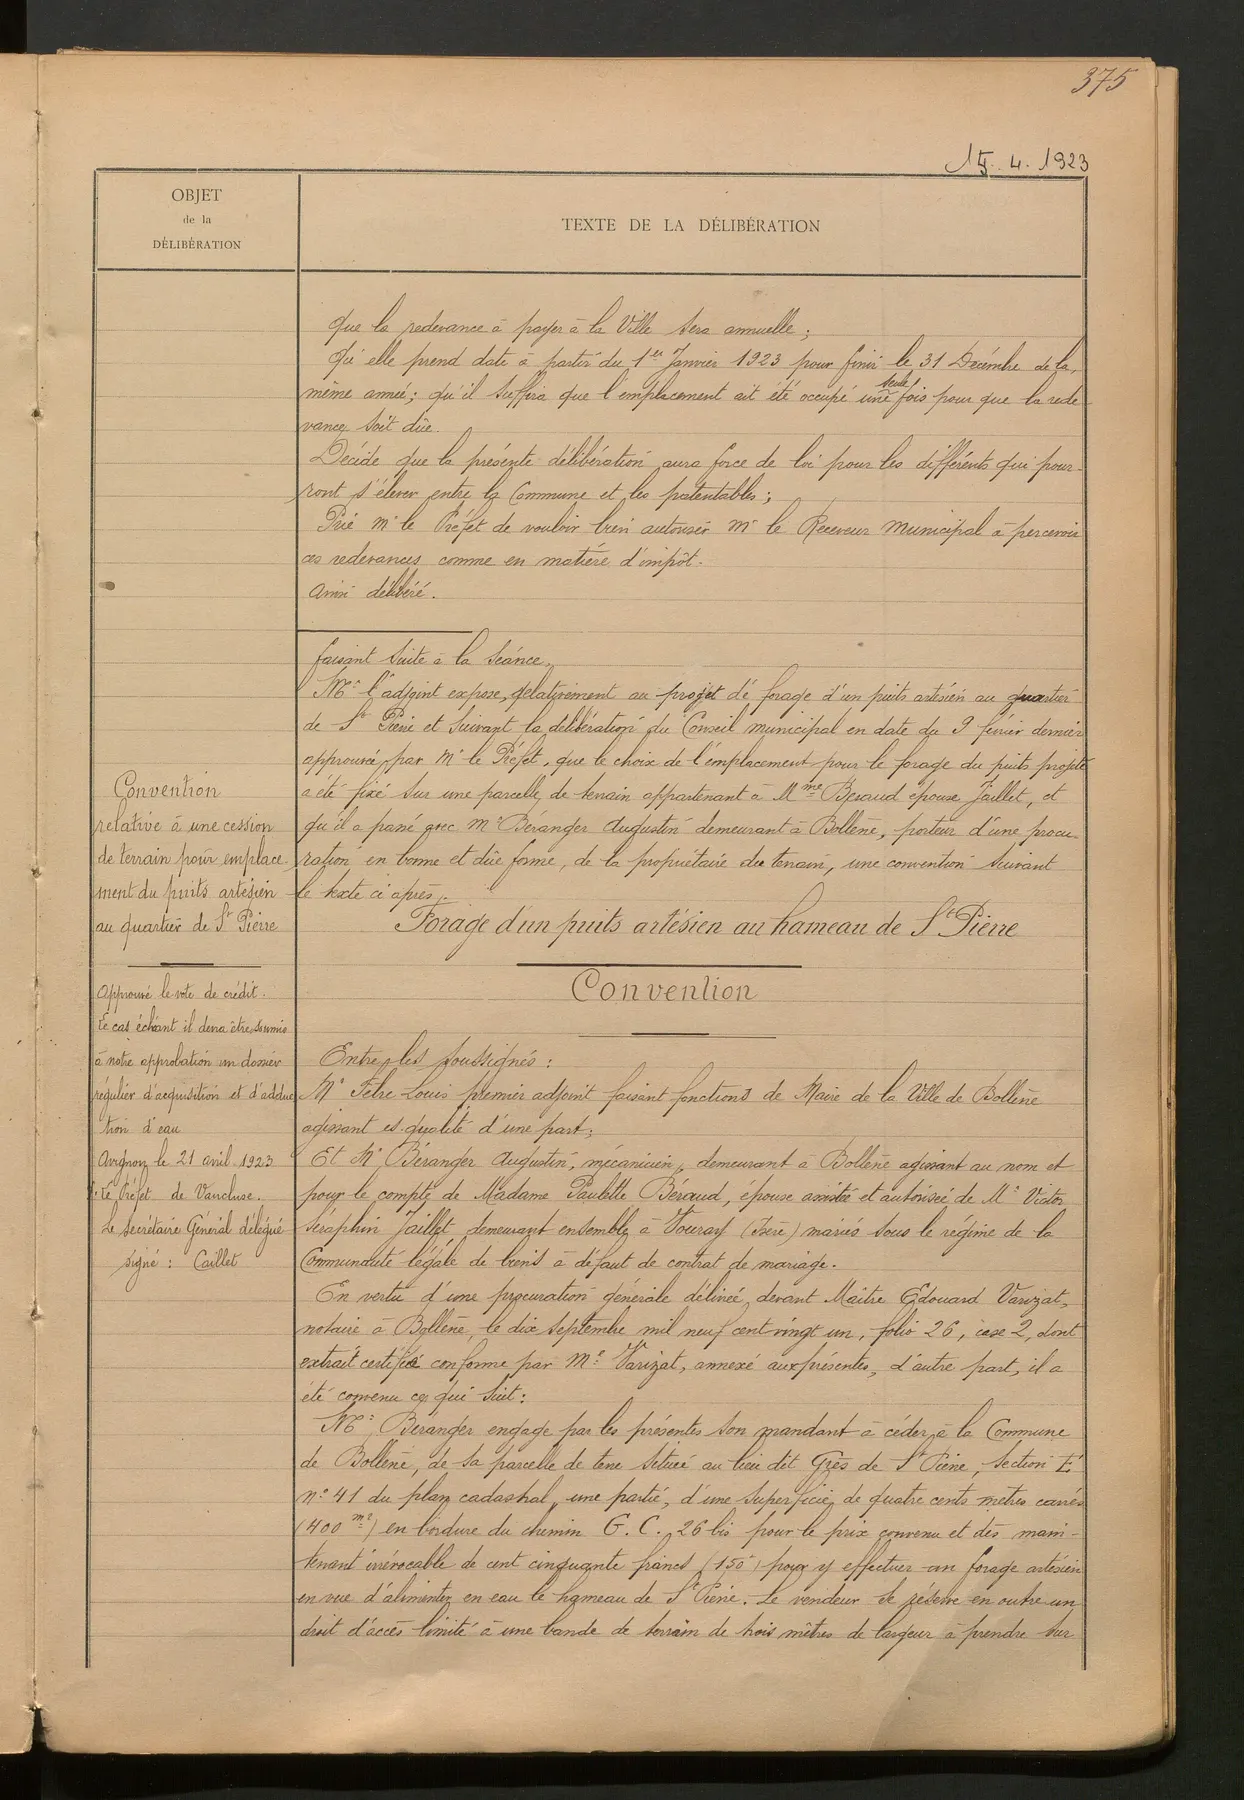 375
15.4.1923
OBJET
de la
DÉLIBÉRATION
TEXTE DE LA DÉLIBÉRATION
Que la redevance à payer à la Ville sera annuelle ;
Qu'elle prend date à partir du 1er Janvier 1923 pour finir le 31 Décembre de la
même année ; qu'il suffira que l'emplacement ait été occupé une seule fois pour que la rede
vance soit dûe.
Décide que la présente délibération aura force de loi pour les différents qui pour-
ront s'élever entre la Commune et les patentables ;
Prie Mr le Préfet de vouloir bien autoriser Mr le Receveur Municipal à percevoir
ces redevances comme en matière d'impôt.
Ainsi délibéré.
faisant suite à la séance,
Mr l'adjoint expose, relativement au projet de forage d'un puits artésien au quartier
de St Pierre et suivant la délibération du Conseil municipal en date du 9 février dernier
approuvée par Mr le Préfet, que le choix de l'emplacement pour le forage du puits projeté
a été fixé sur une parcelle de terrain appartenant à Mme Beraud épouse Jaillet, et
qu'il a passé avec Mr Béranger Augustin demeurant à Bollène, porteur d'une procu
ration en bonne et dûe forme, de la propriétaire du terrain, une convention suivant
le texte ci après.
Convention
relative à une cession
de terrain pour emplace-
ment du puits artésien
au quartier de St Pierre
Forage d'un puits artésien au hameau de St Pierre
Convention
Approuvé le vote de crédit.
Le cas échéant il devra être soumis
à notre approbation un dossier
régulier d'acquisition et d'adduc
tion d'eau
Avignon le 21 avril 1923
P. le Préfet de Vaucluse.
Le Secrétaire Général délégué
signé : Caillet
Entre les soussignés :
Mr Fètre Louis premier adjoint faisant fonctions de Maire de la Ville de Bollène
agissant es-qualité d'une part ;
Et Mr Béranger Augustin, mécanicien, demeurant à Bollène agissant au nom et
pour le compte de Madame Paulette Béraud, épouse assistée et autorisée de Mr Victor
Séraphin Jaillet demeurant ensemble à Vouray (Isère) mariés sous le régime de la
Communauté légale de biens à défaut de contrat de mariage.
En vertu d'une procuration générale délivrée devant Maître Edouard Varizat,
notaire à Bollène, le dix septembre mil neuf cent vingt un, folio 26, case 2, dont
extrait certifié conforme par Me Varizat, annexé aux présentes, d'autre part, il a
été convenu ce qui suit :
Mr Béranger engage par les présentes son mandant à céder à la Commune
de Bollène, de sa parcelle de terre située au lieu dit Grès de St Pierre, section E
no 41 du plan cadastral, une partie, d'une superficie de quatre cents mètres carrés
(400 m2) en bordure du chemin G.C. 26 bis pour le prix convenu et dès main-
tenant irrévocable de cent cinquante francs (150f) pour y effectuer un forage artésien
en vue d'alimenter en eau le hameau de St Pierre. Le vendeur se réserve en outre un
droit d'accès limité à une bande de terrain de trois mètres de largeur à prendre sur